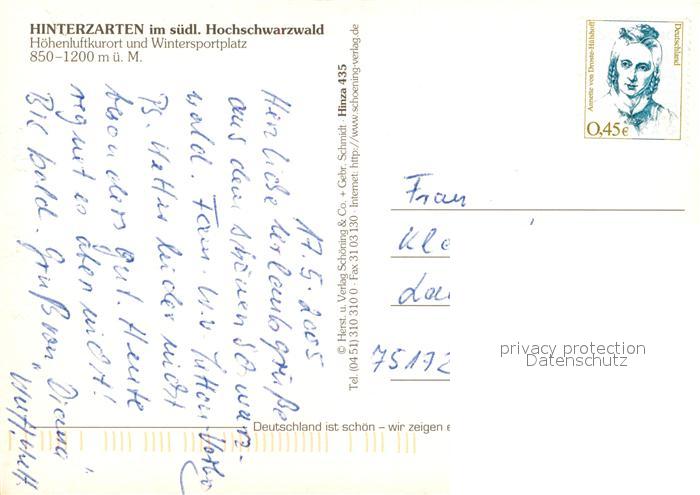 HINTERZARTEN im südl. Hochschwarzwald
Höhenluftkurort und Wintersportplatz
850–1200 m ü. M.
17.5.2005
Herzliche Urlaubsgrüße
aus dem schönen Schwarz-
wald. Fam. W. u.
Ps. Wetter leider nicht
besonders gut. Heute
regnet es aber nicht!
Bis bald. Gruß von Diana
© Herst. u. Verlag Schöning & Co. + Gebr. Schmidt · Hinza 435
Tel. (04 51) 310 310 0 · Fax 31 03 130 · Internet: http://www.schoening-verlag.de
Annette von Droste-Hülshoff
Deutschland
0,45€
Frau
Kle
Lau
75172
privacy protection
Datenschutz
Deutschland ist schön – wir zeigen e